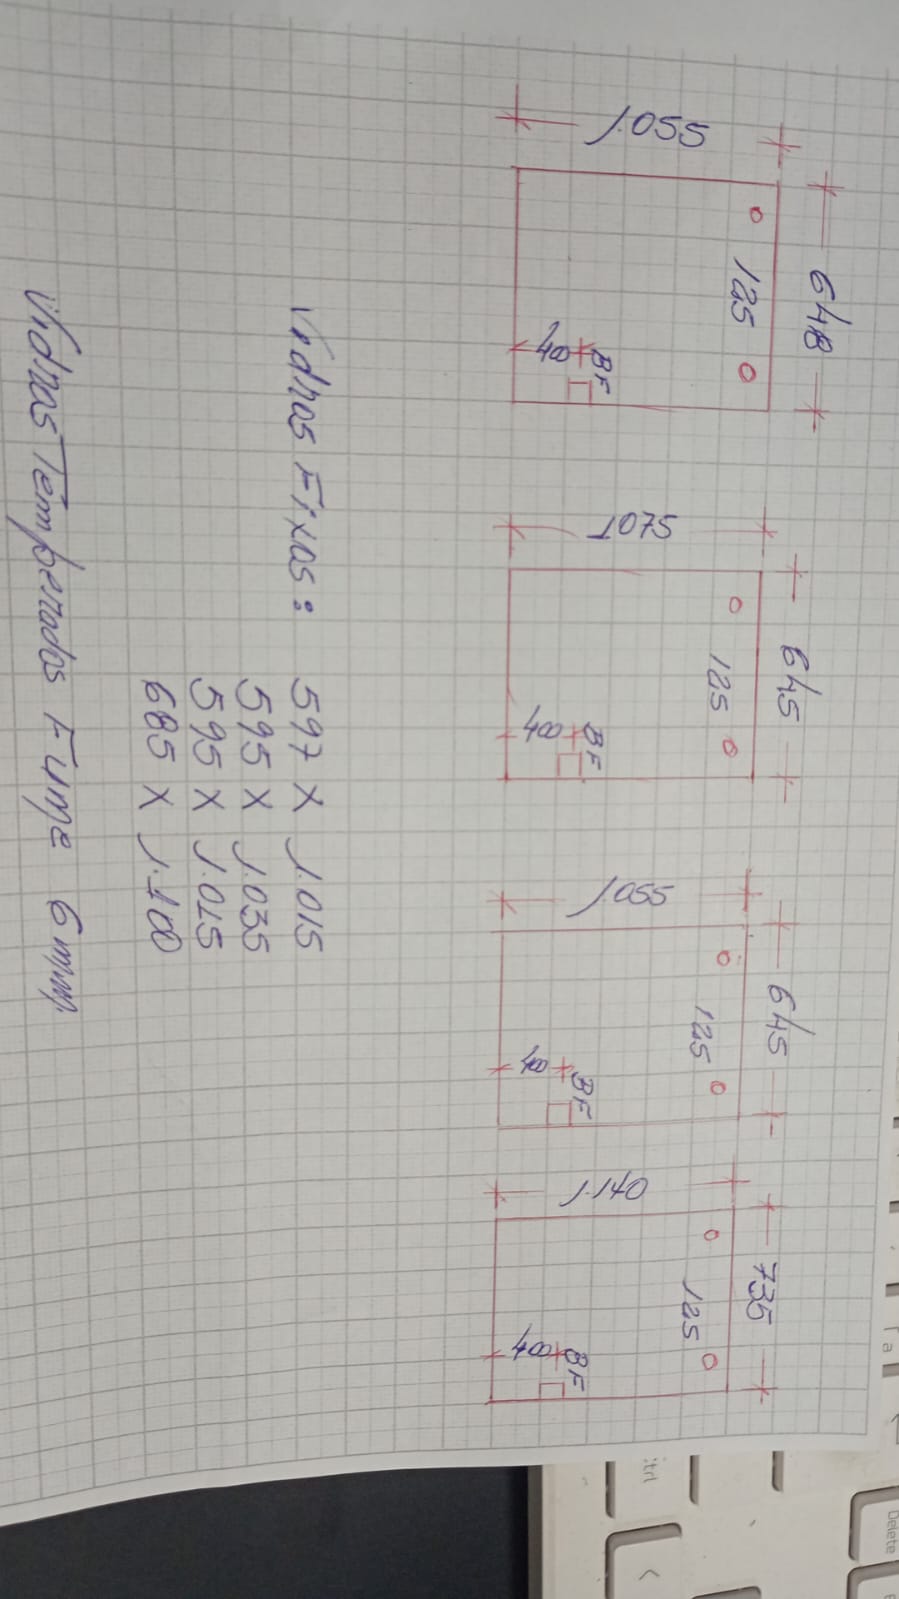 648
1.055
125
400
BF
645
1075
125
400
BF
645
1.055
125
400
BF
735
1.140
125
400
BF
Vidros Fixos: 597 X 1.015
595 X 1.035
595 X 1.015
685 X 1.100
Vidros Temperados Fume 6mm.
Delete